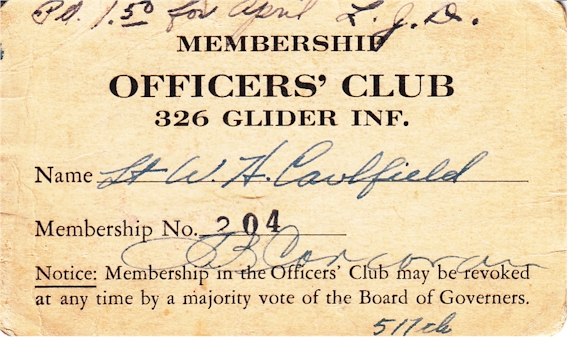 Pd. 1.50 for April L.J.D.
MEMBERSHIP
OFFICERS' CLUB
326 GLIDER INF.
Name Lt W. H. Caulfield
Membership No. 204
JB Corcoran
Notice: Membership in the Officers' Club may be revoked
at any time by a majority vote of the Board of Governers.
517th